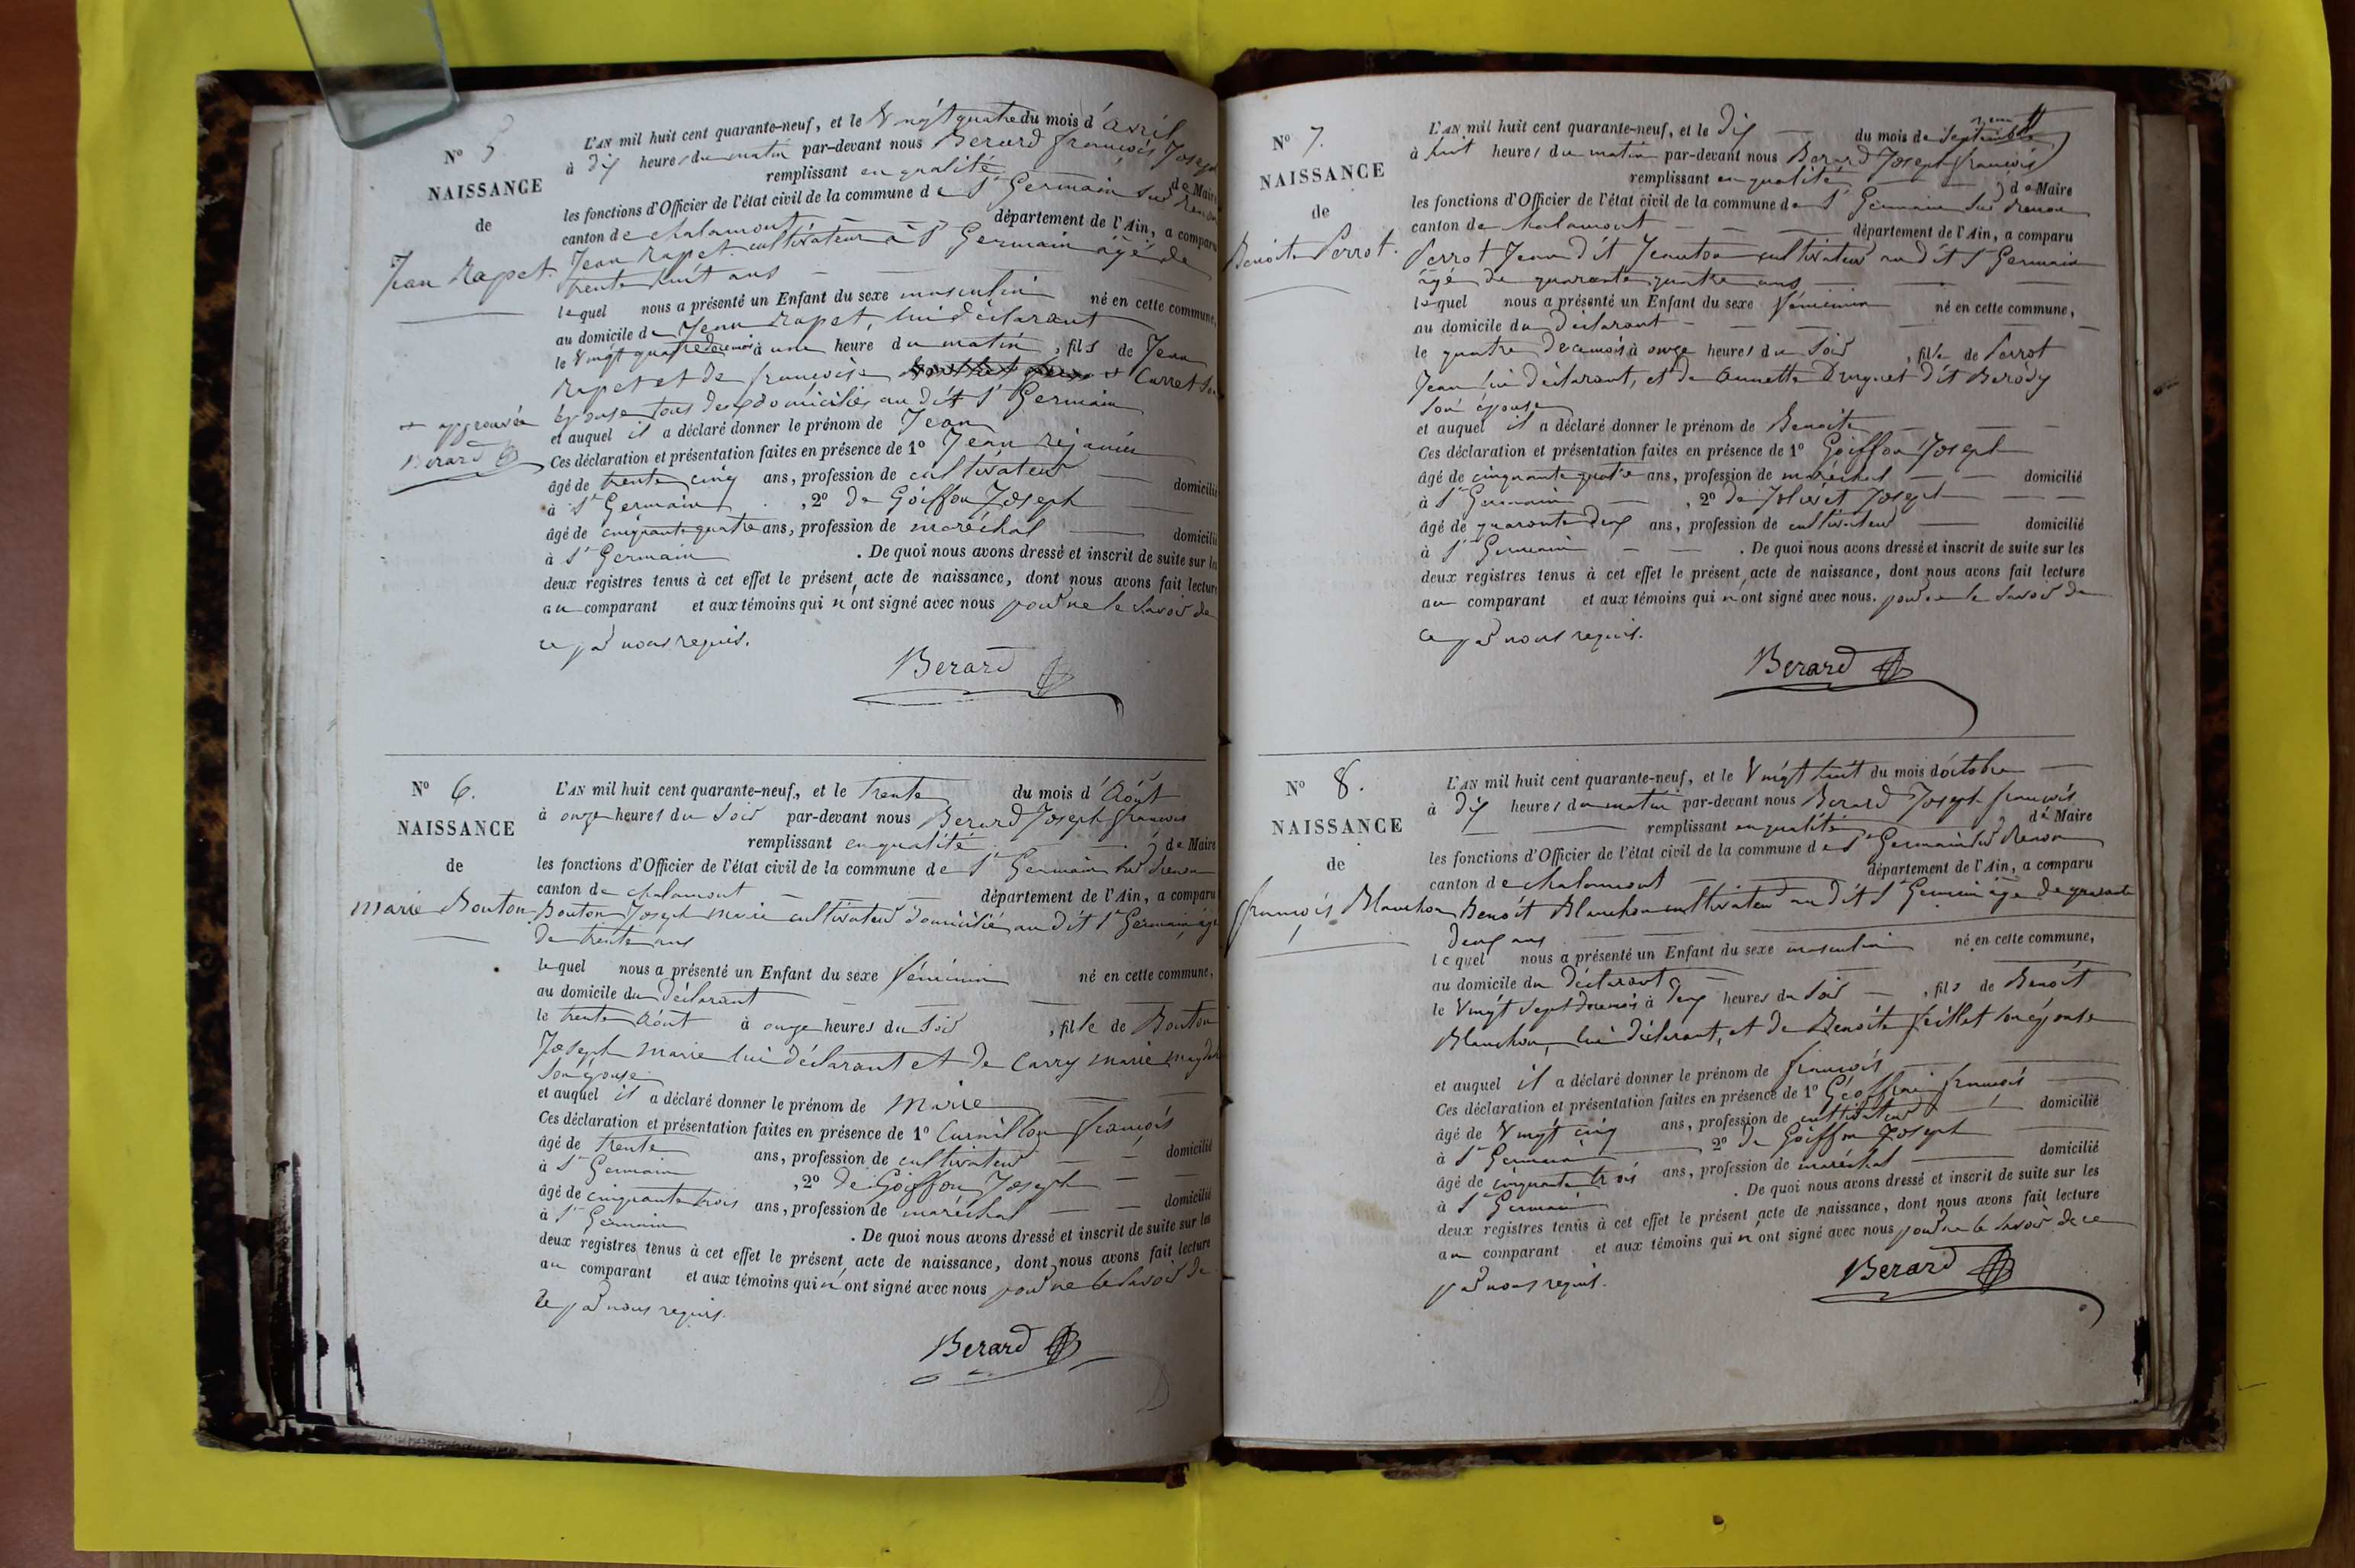 N° 5.
NAISSANCE
de
Jean Rapet.
+ approuvée
Berard
L'AN mil huit cent quarante-neuf, et le Vingt quatre du mois d'Avril
à dix heures du matin par-devant nous Berard françois Joseph
remplissant en qualité de Maire
les fonctions d'Officier de l'état civil de la commune de St Germain sur Renon
canton de chalamont département de l'Ain, a comparu
Jean Rapet cultivateur à St Germain âgé de
trente huit ans
lequel nous a présenté un Enfant du sexe masculin né en cette commune,
au domicile de Jean Rapet, lui déclarant
le Vingt quatre du mois à une heure du matin, fils de Jean
Rapet et de françoise + Carret son
épouse tous deux domiciliés au dit St Germain
et auquel il a déclaré donner le prénom de Jean
Ces déclaration et présentation faites en présence de 1° Jean
âgé de trente cinq ans, profession de cultivateur domicilié
à St Germain, 2° de Goiffon Joseph
âgé de cinquante quatre ans, profession de maréchal domicilié
à St Germain. De quoi nous avons dressé et inscrit de suite sur les
deux registres tenus à cet effet le présent acte de naissance, dont nous avons fait lecture
au comparant et aux témoins qui n'ont signé avec nous pour ne le savoir de
ce par nous requis.
Berard
N° 6.
NAISSANCE
de
Marie Bouton
L'AN mil huit cent quarante-neuf, et le trente du mois d'Aôut
à onze heures du soir par-devant nous Berard Joseph françois
remplissant en qualité de Maire
les fonctions d'Officier de l'état civil de la commune de St Germain sur Renon
canton de chalamont département de l'Ain, a comparu
Bouton Joseph Marie cultivateur domicilié au dit St Germain, âgé
de trente ans
lequel nous a présenté un Enfant du sexe féminin né en cette commune,
au domicile du déclarant
le trente Aôut à onze heures du soir, fille de Bouton
Joseph Marie lui déclarant et de Carry Marie
son épouse
et auquel il a déclaré donner le prénom de Marie
Ces déclaration et présentation faites en présence de 1° Curnillon françois
âgé de trente ans, profession de cultivateur domicilié
à St Germain, 2° de Goiffon Joseph
âgé de cinquante trois ans, profession de maréchal domicilié
à St Germain. De quoi nous avons dressé et inscrit de suite sur les
deux registres tenus à cet effet le présent acte de naissance, dont nous avons fait lecture
au comparant et aux témoins qui n'ont signé avec nous pour ne le savoir de
ce par nous requis.
Berard
N° 7.
NAISSANCE
de
Benoite Perrot.
L'AN mil huit cent quarante-neuf, et le Dix du mois de Septembre
à huit heures du matin par-devant nous Berard Joseph françois
remplissant en qualité de Maire
les fonctions d'Officier de l'état civil de la commune de St Germain sur Renon
canton de chalamont département de l'Ain, a comparu
Perrot Jean dit Jeanton cultivateur au dit St Germain
âgé de quarante quatre ans
lequel nous a présenté un Enfant du sexe féminin né en cette commune,
au domicile du déclarant
le quatre de ce mois à onze heures du soir, fille de Perrot
Jean lui déclarant, et de Annette Druguet dit Berody
son épouse
et auquel il a déclaré donner le prénom de Benoite
Ces déclaration et présentation faites en présence de 1° Goiffon Joseph
âgé de cinquante quatre ans, profession de maréchal domicilié
à St Germain, 2° de Jolivet Joseph
âgé de quarante deux ans, profession de cultivateur domicilié
à St Germain. De quoi nous avons dressé et inscrit de suite sur les
deux registres tenus à cet effet le présent acte de naissance, dont nous avons fait lecture
au comparant et aux témoins qui n'ont signé avec nous. pour ne le savoir de
ce par nous requis.
Berard
N° 8.
NAISSANCE
de
françois Blanchon
L'AN mil huit cent quarante-neuf, et le Vingt huit du mois d'octobre
à dix heures du matin par-devant nous Berard Joseph françois
remplissant en qualité de Maire
les fonctions d'Officier de l'état civil de la commune de St Germain sur Renon
canton de chalamont département de l'Ain, a comparu
Benoît Blanchon cultivateur au dit St Germain âgé de quarante
deux ans
lequel nous a présenté un Enfant du sexe masculin né en cette commune,
au domicile du déclarant
le Vingt sept du mois à deux heures du soir, fils de Benoît
Blanchon, lui déclarant, et de Benoite feillet son épouse
et auquel il a déclaré donner le prénom de françois
Ces déclaration et présentation faites en présence de 1° Géoffrai françois
âgé de Vingt cinq ans, profession de cultivateur domicilié
à St Germain 2° de Goiffon Joseph
âgé de cinquante trois ans, profession de maréchal domicilié
à St Germain. De quoi nous avons dressé et inscrit de suite sur les
deux registres tenus à cet effet le présent acte de naissance, dont nous avons fait lecture
au comparant et aux témoins qui n'ont signé avec nous pour ne le savoir de ce
par nous requis.
Berard